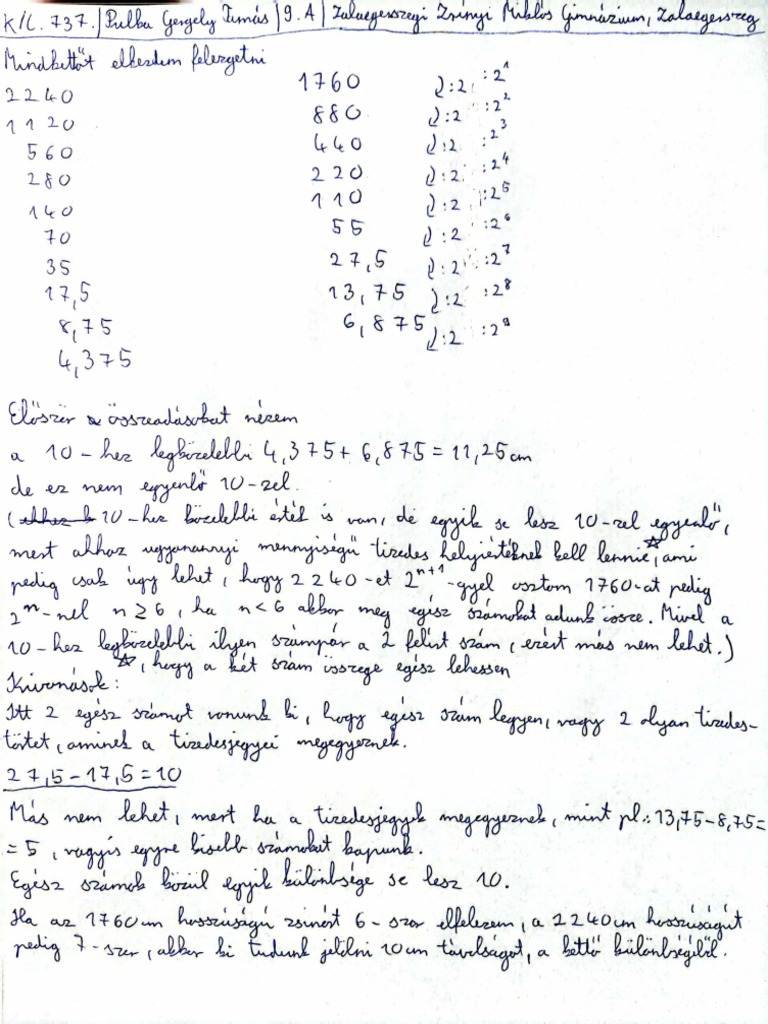 K/C. 737. | Pulka Gergely Tamás | 9. A | Zalaegerszegi Zrínyi Miklós Gimnázium, Zalaegerszeg
Mindkettőt elkezdem felezgetni
2240 1760 :2 :2^1
1120 880 :2 :2^2
560 440 :2 :2^3
280 220 :2 :2^4
140 110 :2 :2^5
70 55 :2 :2^6
35 27,5 :2 :2^7
17,5 13,75 :2 :2^8
8,75 6,875 :2 :2^9
4,375
Először a összeadásokat nézem
a 10-hez legközelebbi 4,375 + 6,875 = 11,25 cm
de ez nem egyenlő 10-zel.
(10-hez közelebbi érték is van, de egyik se lesz 10-zel egyenlő,
mert ahhoz ugyanannyi mennyiségű tizedes helyiértéknek kell lennie☆, ami
pedig csak úgy lehet, hogy 2240-et 2^(n+1)-gyel osztom 1760-at pedig
2^n-nel n ≥ 6, ha n < 6 akkor meg egész számokat adunk össze. Mivel a
10-hez legközelebbi ilyen számpár a 2 felírt szám, ezért más nem lehet.)
☆, hogy a két szám összege egész lehessen
Kivonások:
Itt 2 egész számot vonunk ki, hogy egész szám legyen, vagy 2 olyan tizedes-
törtet, aminek a tizedesjegyei megegyeznek.
27,5 - 17,5 = 10
Más nem lehet, mert ha a tizedesjegyek megegyeznek, mint pl.: 13,75 - 8,75 =
= 5, vagyis egyre kisebb számokat kapunk.
Egész számok közül egyik különbsége se lesz 10.
Ha az 1760 cm hosszúságú zsinórt 6-szor elfelezem, a 2240 cm hosszúságút
pedig 7-szer, akkor ki tudunk jelölni 10 cm távolságot, a kettő különbségéből.